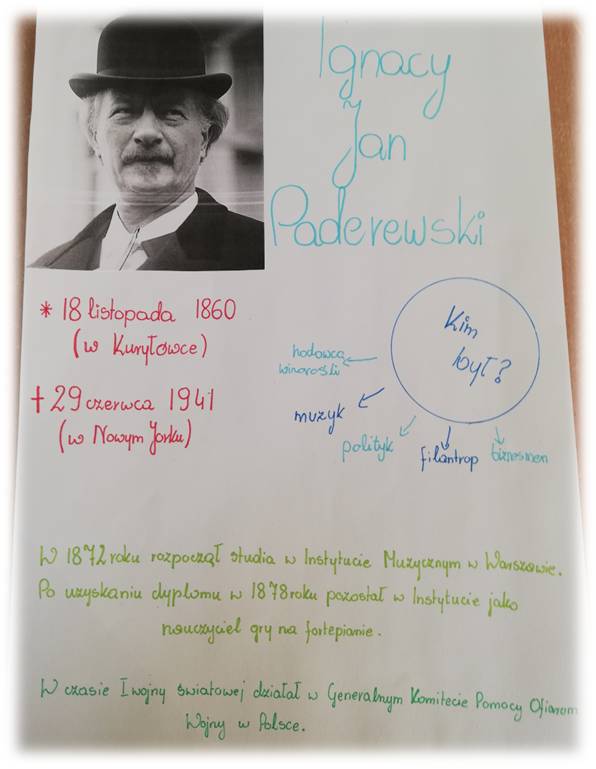 Ignacy
Jan
Paderewski
* 18 listopada 1860
(w Kuryłówce)
† 29 czerwca 1941
(w Nowym Jorku)
Kim
był?
hodowca
winorośli
muzyk
polityk
filantrop
biznesmen
W 1872 roku rozpoczął studia w Instytucie Muzycznym w Warszawie.
Po uzyskaniu dyplomu w 1878 roku pozostał w Instytucie jako
nauczyciel gry na fortepianie.
W czasie I wojny światowej działał w Generalnym Komitecie Pomocy Ofiarom
Wojny w Polsce.